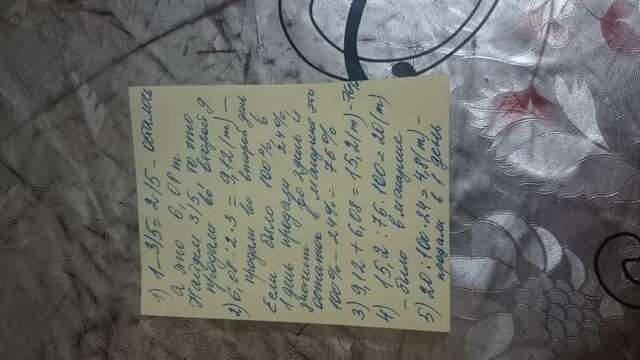 1) 1-3/5=2/5 - осталось
А это 6,08т
Найдем 3/5, то что
продали во второй д.
2) 6,08:2·3=9,12(т) -
продали во второй день
Если было 100%, в
1 день продали 24%,
значит во 2день и
остаток в магазине это
100%-24%=76%
3) 9,12+6,08=15,2(т)-76%
4) 15,2:76·100=20(т)
- было в магазине
5) 20:100·24=4,8(т) -
продали в 1 день